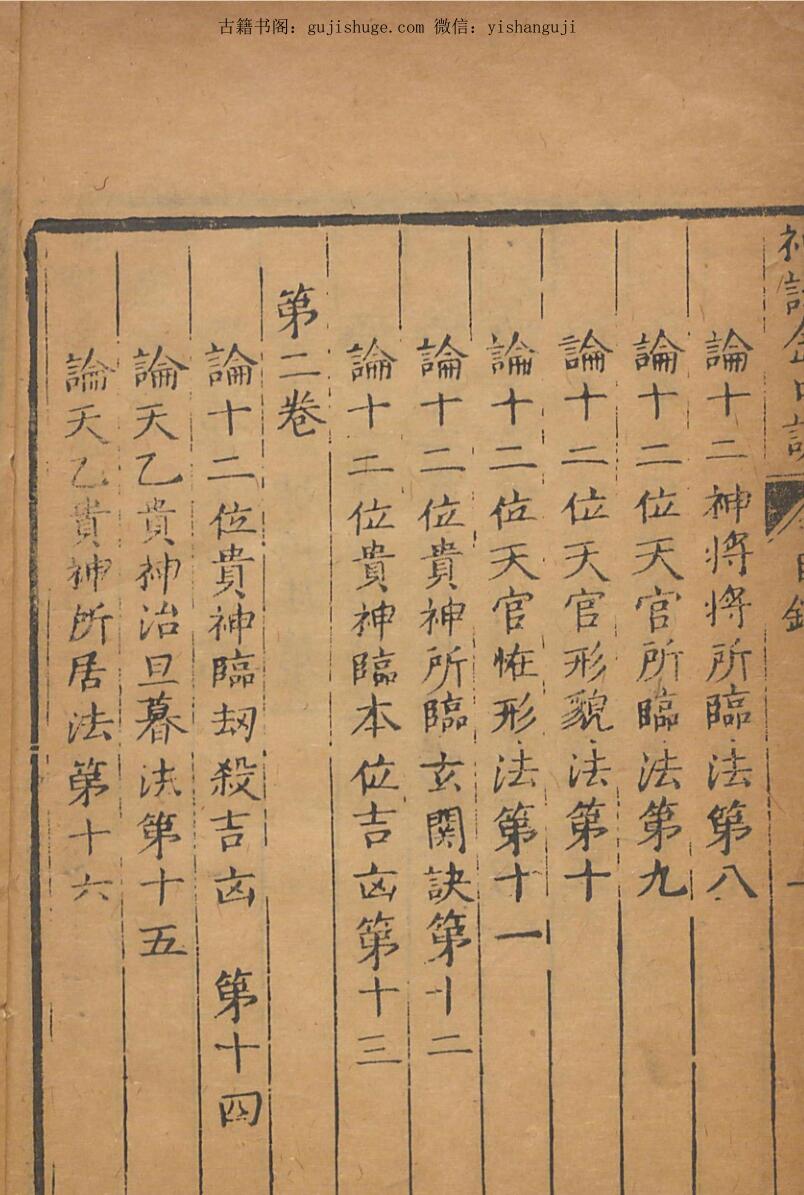 古籍书阁：gujishuge.com 微信：yishanguji
論十二神將將所臨法第八
論十二位天官所臨法第九
論十二位天官形貌法第十
論十二位天官恠形法第十一
論十二位貴神所臨玄関訣第十二
論十二位貴神臨本位吉㐫第十三
第二卷
論十二位貴神臨刼殺吉㐫 第十四
論天乙貴神治旦暮法第十五
論天乙貴神所居法第十六